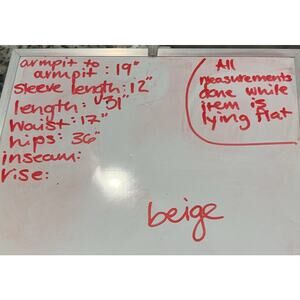 armpit to
armpit: 19"
sleeve length: 12"
length: 31"
waist: 17"
hips: 36"
inseam:
rise:
All
measurements
done while
item is
lying flat
beige